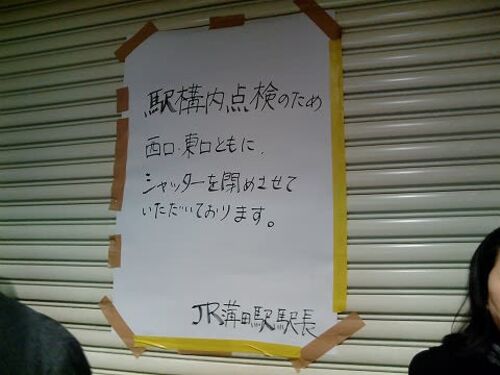 駅構内点検のため
西口・東口ともに、
シャッターを閉めさせて
いただいております。
JR蒲田駅駅長